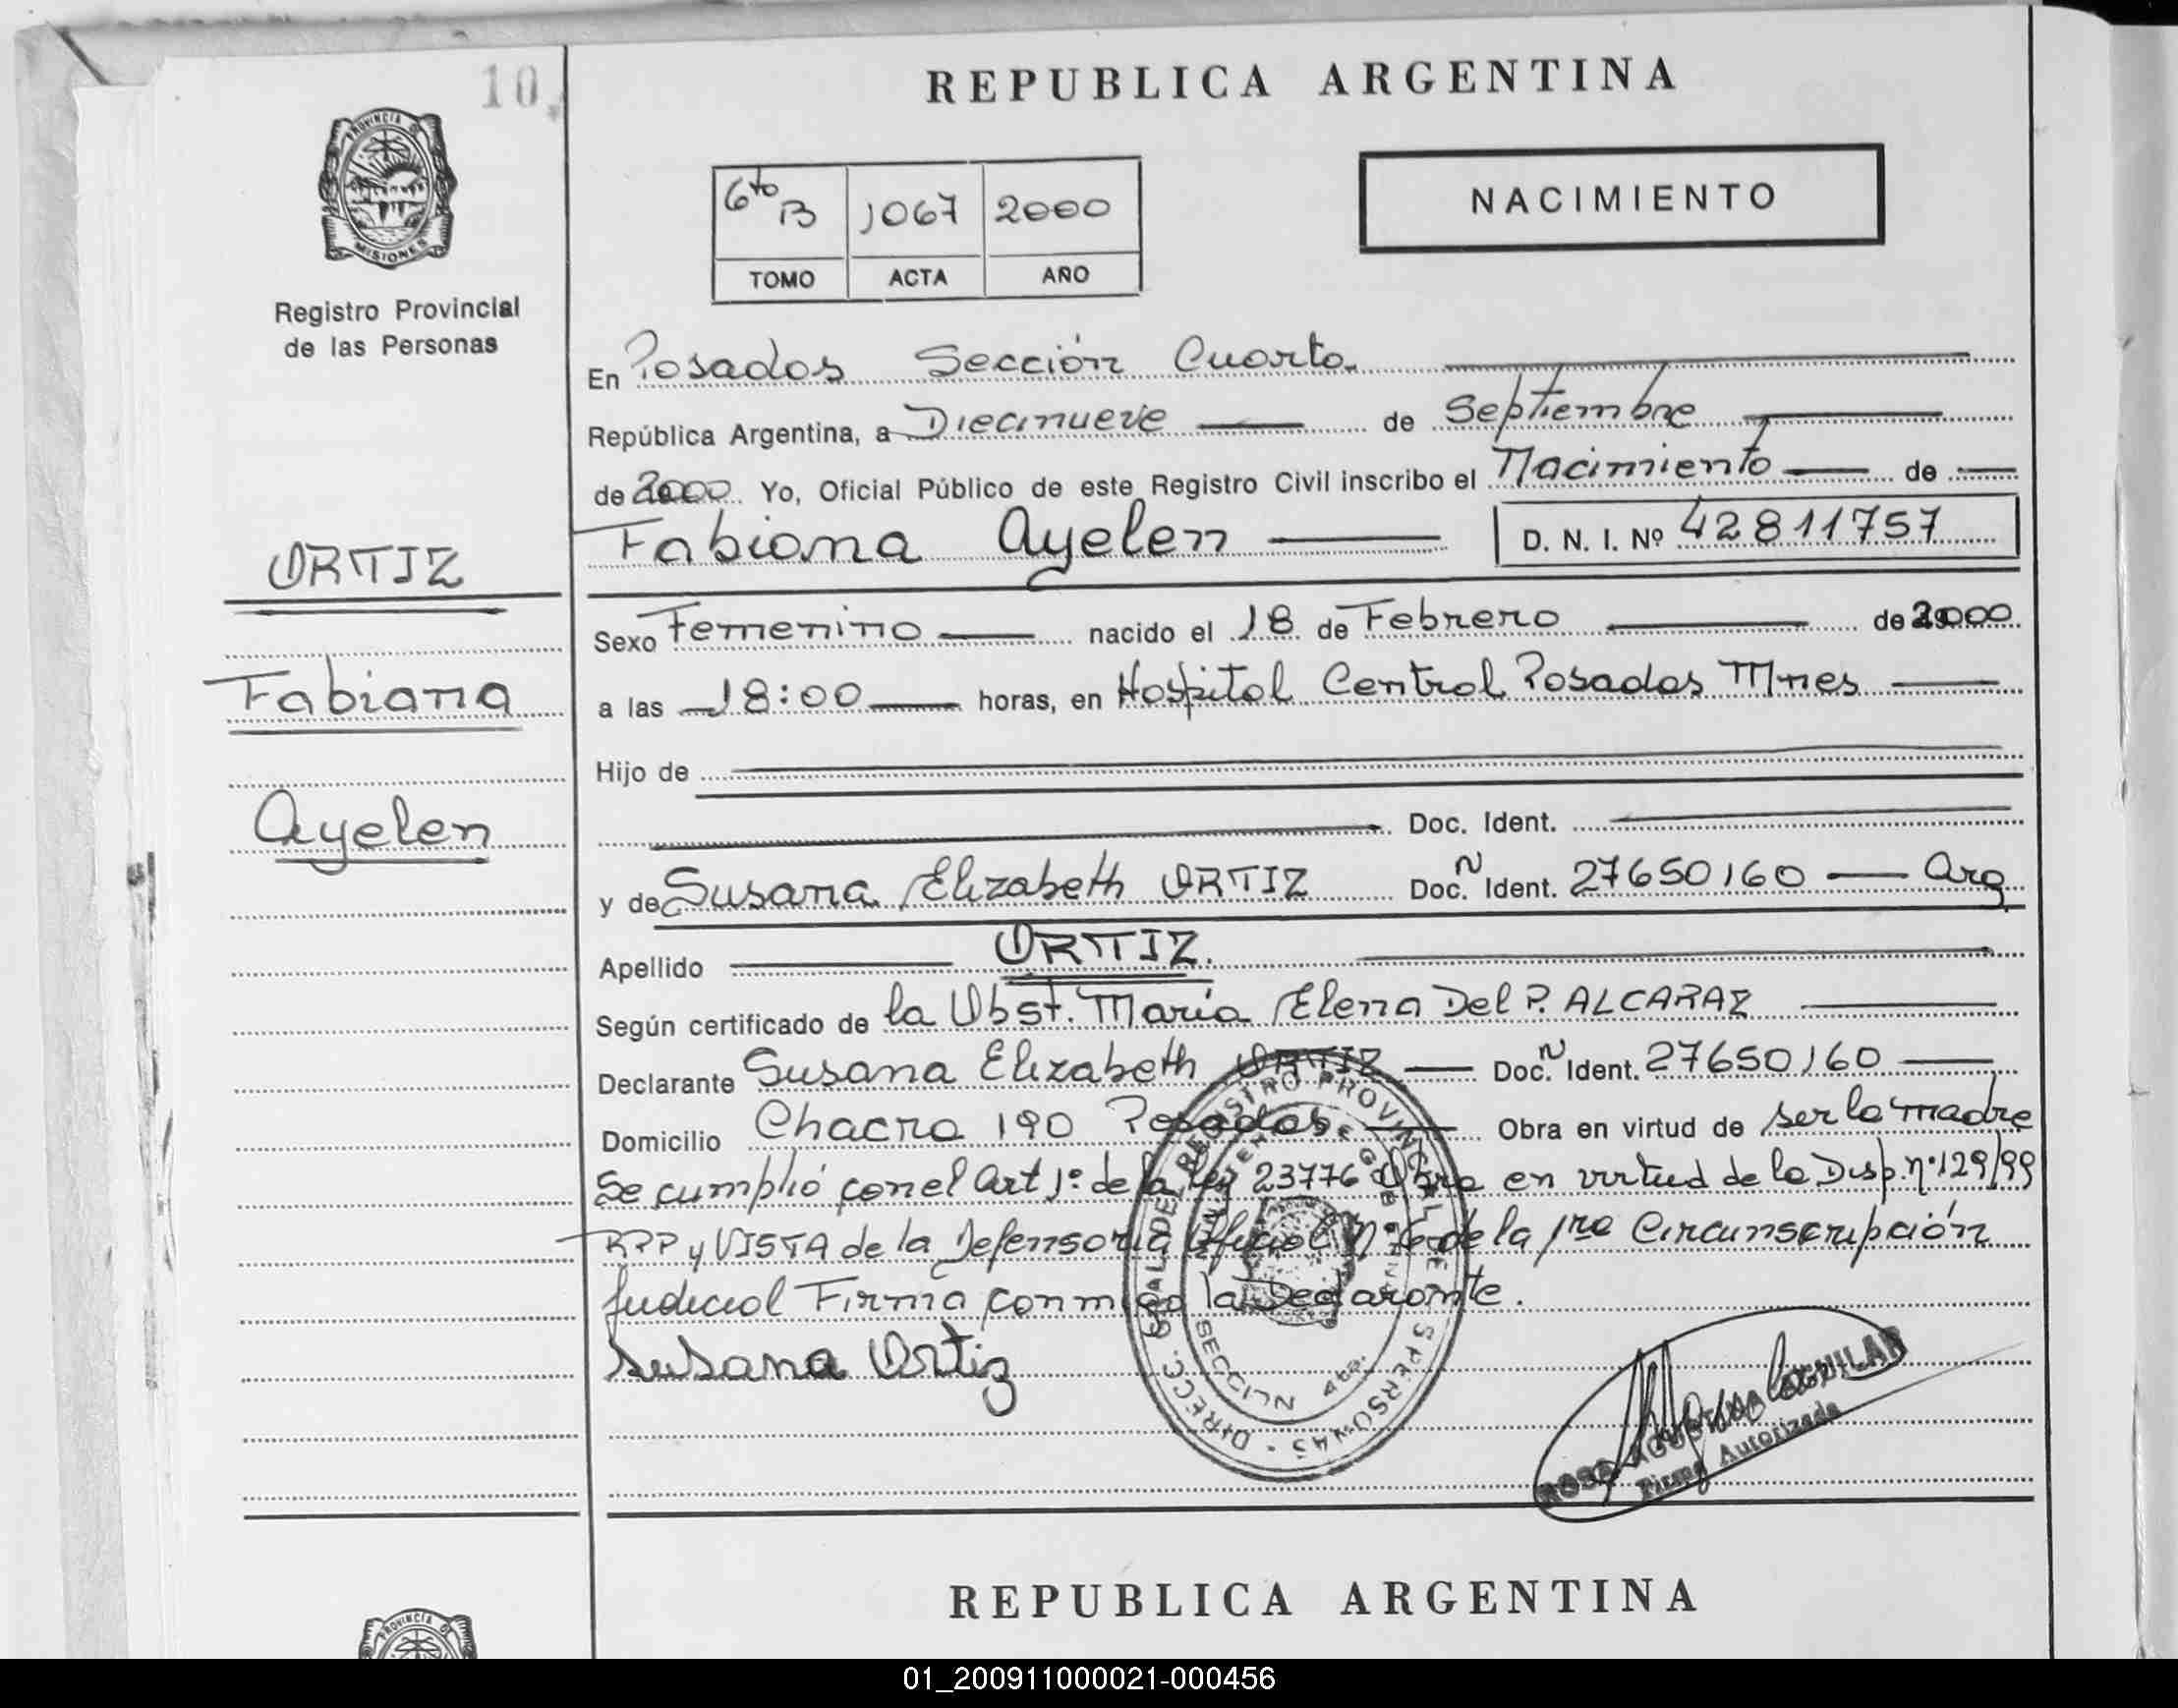 10
REPUBLICA ARGENTINA
PROVINCIA D
MISIONES
Registro Provincial
de las Personas
6to B 1067 2000
TOMO ACTA AÑO
NACIMIENTO
En Posadas Sección Cuarta
República Argentina, a Diecinueve de Septiembre
de 2000 Yo, Oficial Público de este Registro Civil inscribo el Nacimiento de
Fabiana Ayelen D. N. I. Nº 42811757
ORTIZ
Fabiana
Ayelen
Sexo Femenino nacido el 18 de Febrero de 2000
a las 18:00 horas, en Hospital Central Posadas Mnes
Hijo de
Doc. Ident.
y de Susana Elizabeth ORTIZ Doc. N Ident. 27650160 Arg
Apellido ORTIZ.
Según certificado de la Obst. María Elena Del P. ALCARAZ
Declarante Susana Elizabeth ORTIZ Doc. N Ident. 27650160
Domicilio Chacra 190 Posadas Obra en virtud de ser la madre
Se cumplió con el Art 1º de la Ley 23776 Obra en virtud de la Disp. nº 129/99
RPP y VISTA de la Defensoria Oficial Nº 6 de la 1ra Circunscripción
Judicial Firma conmigo la Declarante.
Susana Ortiz
DIRECC. GRAL DEL REGISTRO PROVINCIAL DE PERSONAS
SECCION 4ta.
ROSA AGUSTINA AGUILAR
Firma Autorizada
REPUBLICA ARGENTINA
PROVINCIA D
01_200911000021-000456